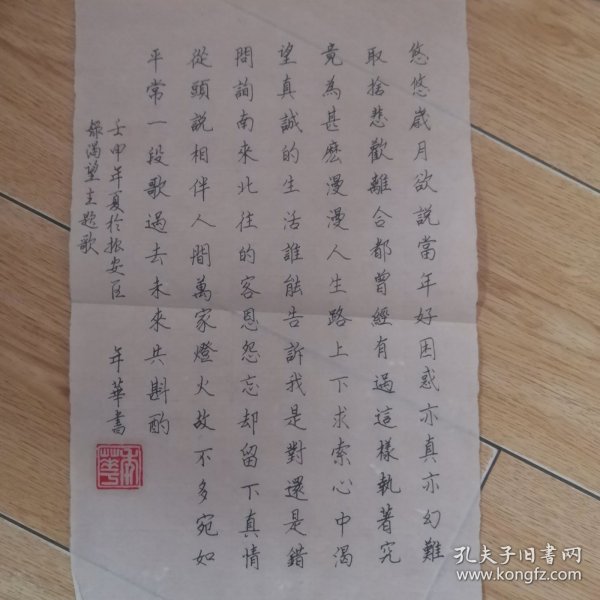 悠悠歲月欲說當年好困惑亦真亦幻難
取捨悲歡離合都曾經有過這樣執著究
竟為甚麽漫漫人生路上下求索心中渴
望真誠的生活誰能告訴我是對還是錯
問詢南來北往的客恩怨忘却留下真情
從頭說相伴人間萬家燈火故不多宛如
平常一段歌過去未來共斟酌
壬申年夏於振安區
錄渴望主題歌
年華書
孔夫子旧书网
www.kongfz.com